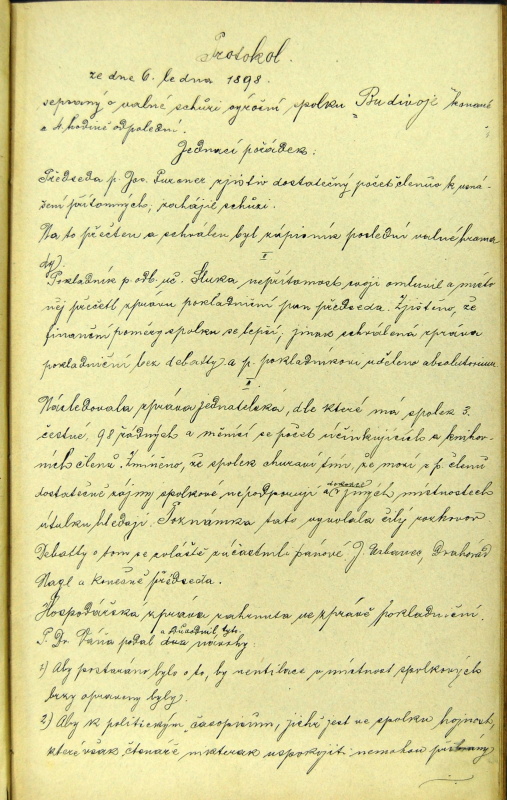 Protokol.
ze dne 6. ledna 1898.
sepsaný o valné schůzi výroční spolku „Budivoj“ konané
o 4. hodině odpolední.
Jednací pořádek:
Předseda p. Jos. Purcner zjistiv dostatečný počet členův k usná-
šení přítomných, zahájil schůzi.
Na to přečten a schválen byl zápisník poslední valné hroma
dy.
I
Pokladník p. odb. uč. Sluka nepřítomost svoji omluvil a místo
něj přečetl zprávu pokladniční pan předseda. Zjištěno, že
finanční poměry spolku se lepší, jinak schválená zpráva
pokladniční bez debatty a p. pokladníkovi uděleno absolutorium
II.
Následovala zpráva jednatelská, dle které má spolek 3.
čestné, 98 řádných a měnící se počet účinkujících a knihov-
ních členů. Zmíněno, že spolek churaví tím, že mnozí z p. členů
dostatečně zájmy spolkové nepodporují a dokonce v jiných místnostech
útulku hledají. Poznámka tato vyvolala čilý rozhovor
Debatty o tom se zvláště súčastnili pánové J. Urbanec, Drahorád
Nagl a konečně předseda.
Hospodářská zpráva zahrnuta ve zprávě pokladniční.
P. Dr. Váňa podal a důvodnil tyto dva návrhy:
1) Aby postaráno bylo o to, by ventilace v místnost spolkových
brzy opraveny byly.
2) Aby k politickým časopisům, jichž jest ve spolku hojnost,
které však čtenáře nikterak uspokojiti nemohou přibrány